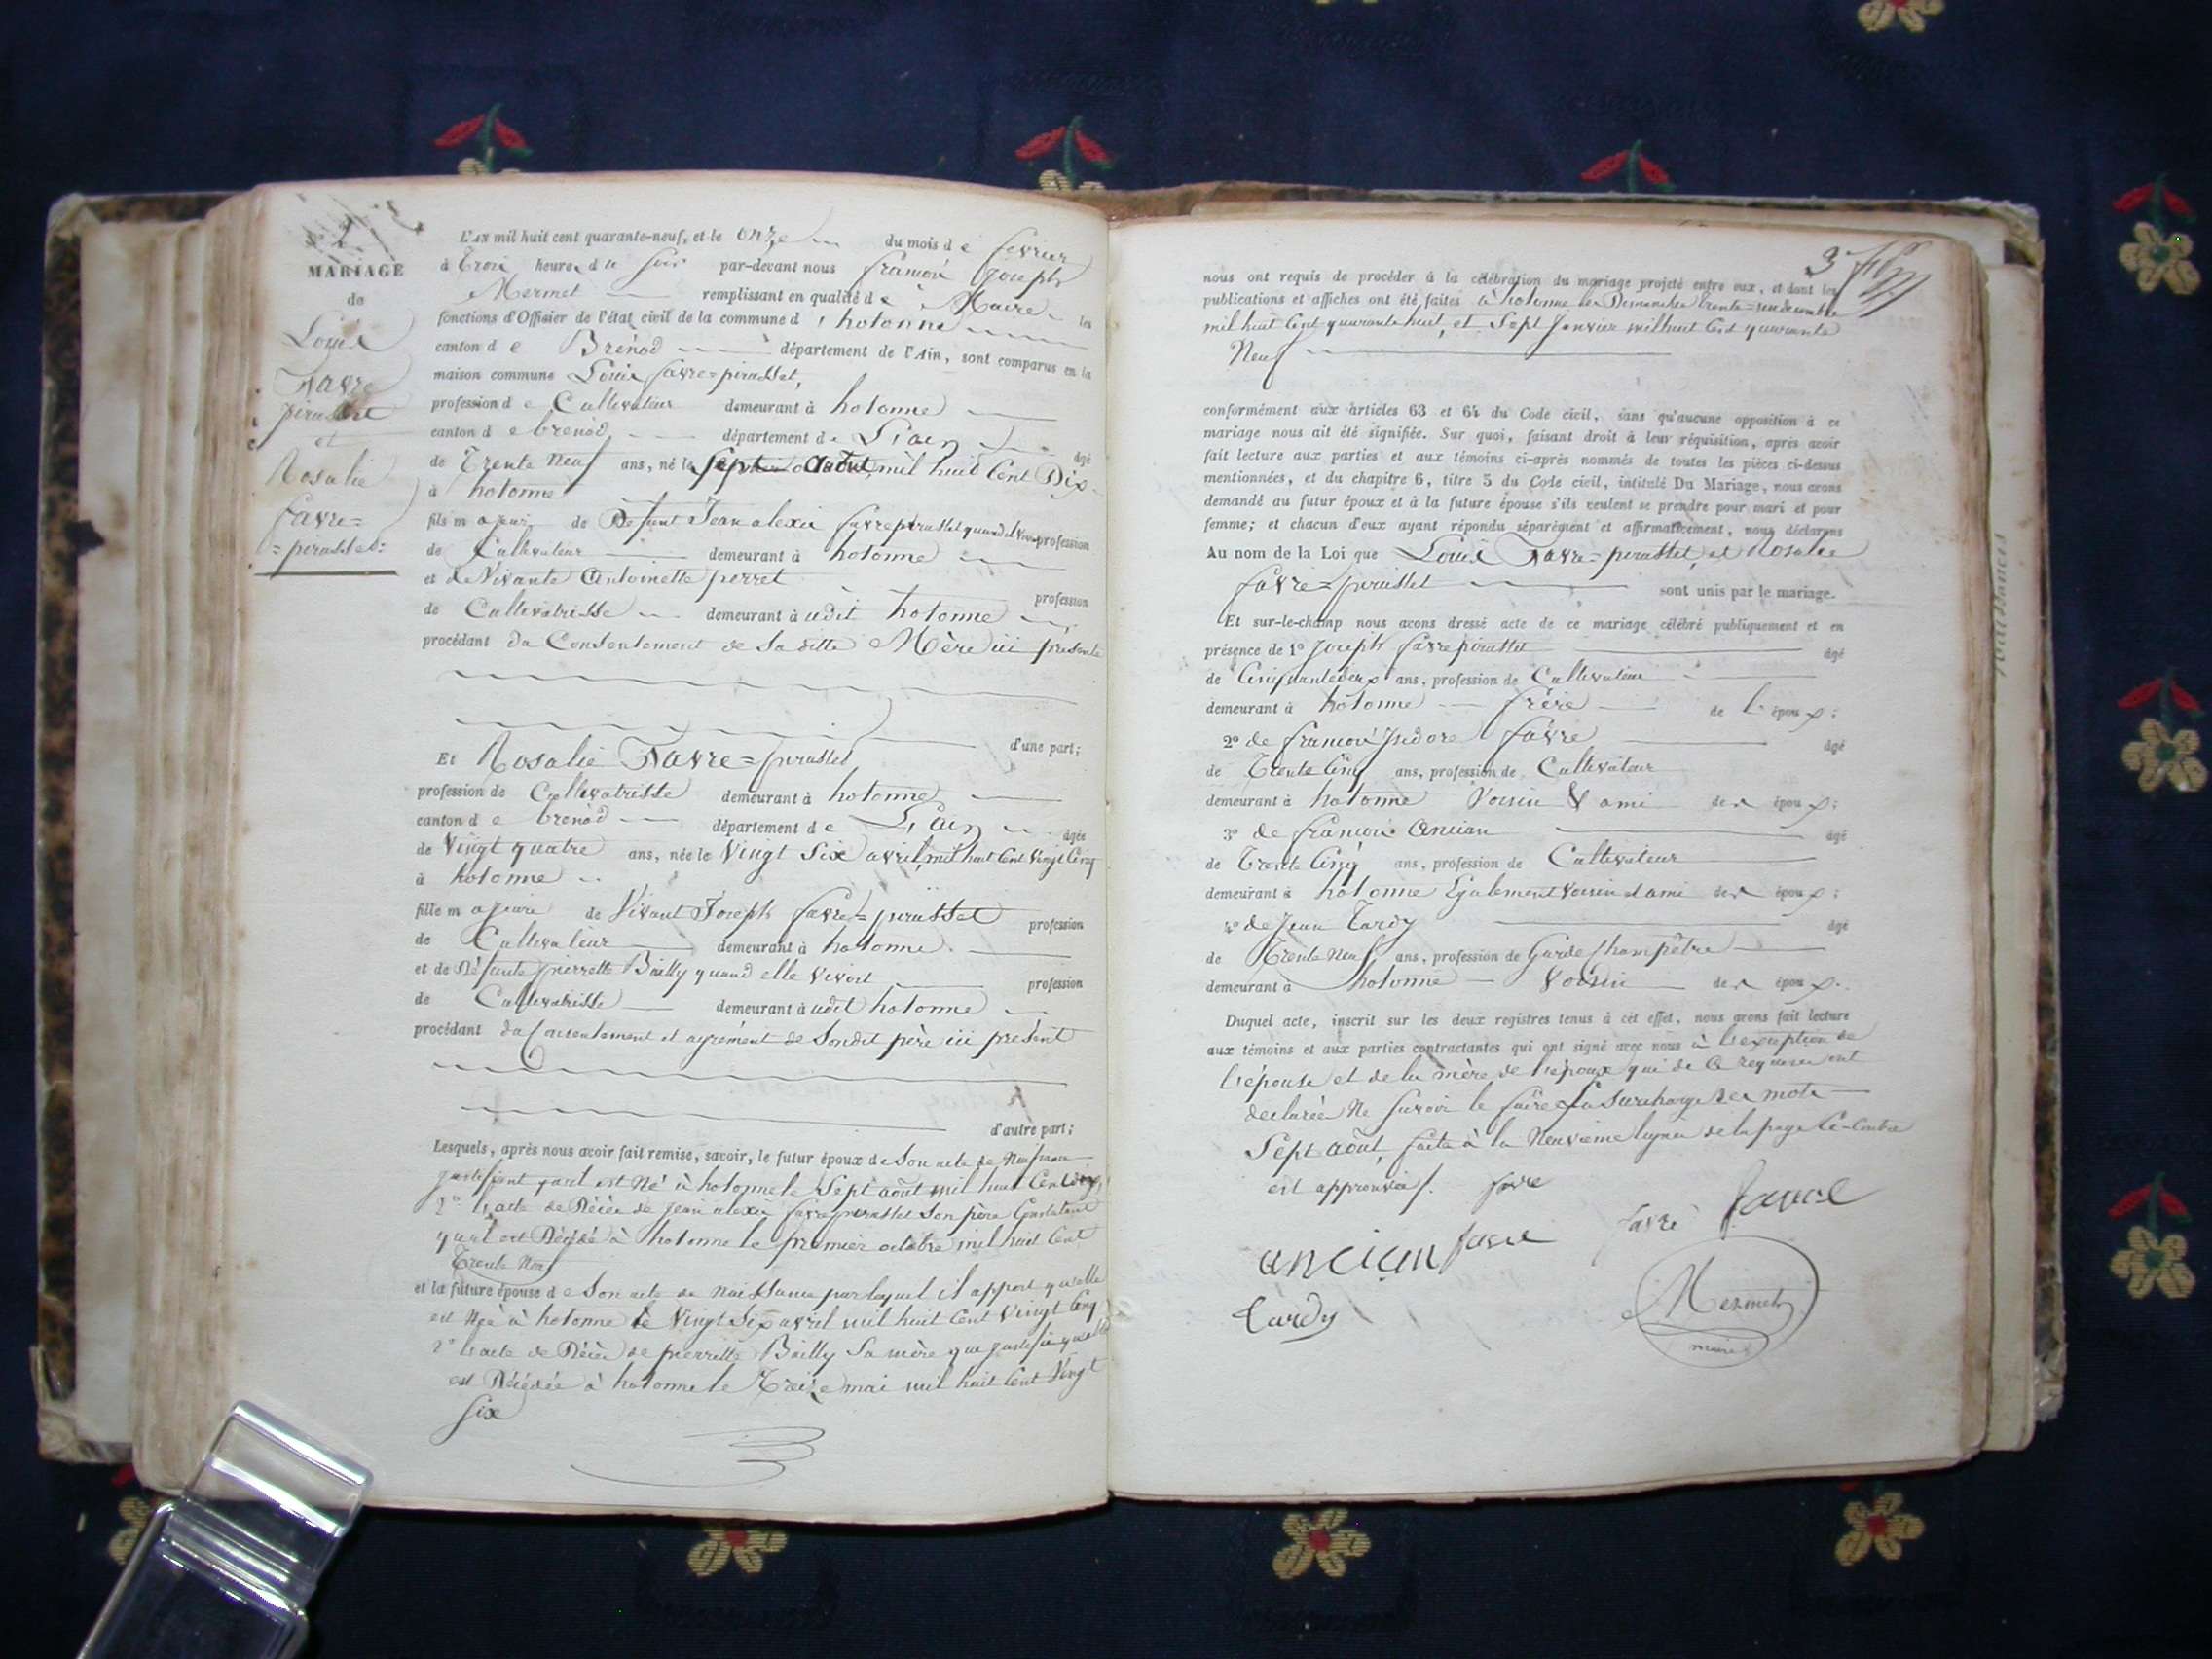 MARIAGE
de
Louis
Favre
pirasset
et
Rosalie
favre=
=pirasset=
L'AN mil huit cent quarante-neuf, et le onze du mois de fevrier
à Trois heures du soir par-devant nous françois Joseph
Mermet remplissant en qualité de Maire les
fonctions d'Officier de l'état civil de la commune d'hotonne
canton de Brénod département de l'Ain, sont comparus en la
maison commune Louis favre=pirasset,
profession de Cultivateur demeurant à hotonne
canton de brenod département de L'ain âgé
de Trente Neuf ans, né le sept aout mil huit Cent Dix
à hotonne
fils majeur de Defunt Jean alexis favre pirasset quand il vivoit profession
de Cultivateur demeurant à hotonne
et de Vivante Antoinette perret profession
de Cultivatrisse demeurant à udit hotonne
procédant du Consentement de Sa ditte Mère ici présente
d'une part;
Et Rosalie Favre=pirasset
profession de Cultivatrisse demeurant à hotonne
canton de brenod département de L'ain âgée
de Vingt quatre ans, née le Vingt Six avril mil huit Cent Vingt Cinq
à hotonne
fille majeure de Vivant Joseph favre=pirasset profession
de Cultivateur demeurant à hotonne
et de Défunte pierrette Bailly quand elle vivoit profession
de Cultivatrisse demeurant à udit hotonne
procédant du Consentement et agrément de Sondit père ici présent
d'autre part;
Lesquels, après nous avoir fait remise, savoir, le futur époux de Son acte de Naissance
justifiant quil est Né à hotonne le Sept août mil huit Cent dix,
2° L'acte de Décès de Jean alexis favre pirasset Son père Constatant
quil est Décédé à hotonne le premier octobre mil huit Cent
Trente Neuf
et la future épouse de Son acte de Naissance par lequel il appert qu'elle
est Née à hotonne le Vingt Six avril mil huit Cent Vingt Cinq
2° L'acte de Décès de pierrette Bailly Sa mère que justifie qu'elle
est Décédée à hotonne le Treize mai mil huit Cent Vingt
Six
3
nous ont requis de procéder à la célébration du mariage projeté entre eux, et dont les
publications et affiches ont été faites à hotonne les Dimanches trente=un décembre
mil huit Cent quarante huit, et Sept Janvier mil huit Cent quarante
Neuf
conformément aux articles 63 et 64 du Code civil, sans qu'aucune opposition à ce
mariage nous ait été signifiée. Sur quoi, faisant droit à leur réquisition, après avoir
fait lecture aux parties et aux témoins ci-après nommés de toutes les pièces ci-dessus
mentionnées, et du chapitre 6, titre 5 du Code civil, intitulé Du Mariage, nous avons
demandé au futur époux et à la future épouse s'ils veulent se prendre pour mari et pour
femme; et chacun d'eux ayant répondu séparément et affirmativement, nous déclarons
Au nom de la Loi que Louis Favre=pirasset, et Rosalie
favre=pirasset sont unis par le mariage.
Et sur-le-champ nous avons dressé acte de ce mariage célébré publiquement et en
présence de 1° Joseph favre pirasset âgé
de Cinquante deux ans, profession de Cultivateur
demeurant à hotonne frère de L'époux;
2° de françois Isidore favre âgé
de Trente Cinq ans, profession de Cultivateur
demeurant à hotonne Voisin & ami des époux;
3° de françois Ancian âgé
de Trente Cinq ans, profession de Cultivateur
demeurant à hotonne Egalement voisin et ami des époux;
4° de Jean Tardy âgé
de Trente Neuf ans, profession de Garde Champêtre
demeurant à hotonne Voisin des époux.
Duquel acte, inscrit sur les deux registres tenus à cet effet, nous avons fait lecture
aux témoins et aux parties contractantes qui ont signé avec nous à L'exception de
L'épouse et de la mère de L'époux qui de ce requises ont
declarées Ne Savoir le faire La Surcharge des mots
Sept août, faite à la Neuvième ligne de la page Ci-Contre
est approuvée. favre
ancian favre favre favre
tardy Mermet
maire